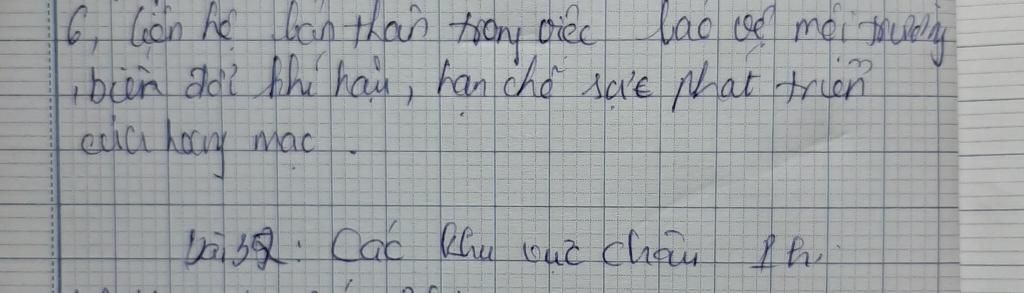 6, Liên hệ bản thân trong việc bảo vệ môi trường
, biến đổi khí hậu, hạn chế sực phát triển
của hoang mạc.
Bài 32: Các khu vực châu Ph.